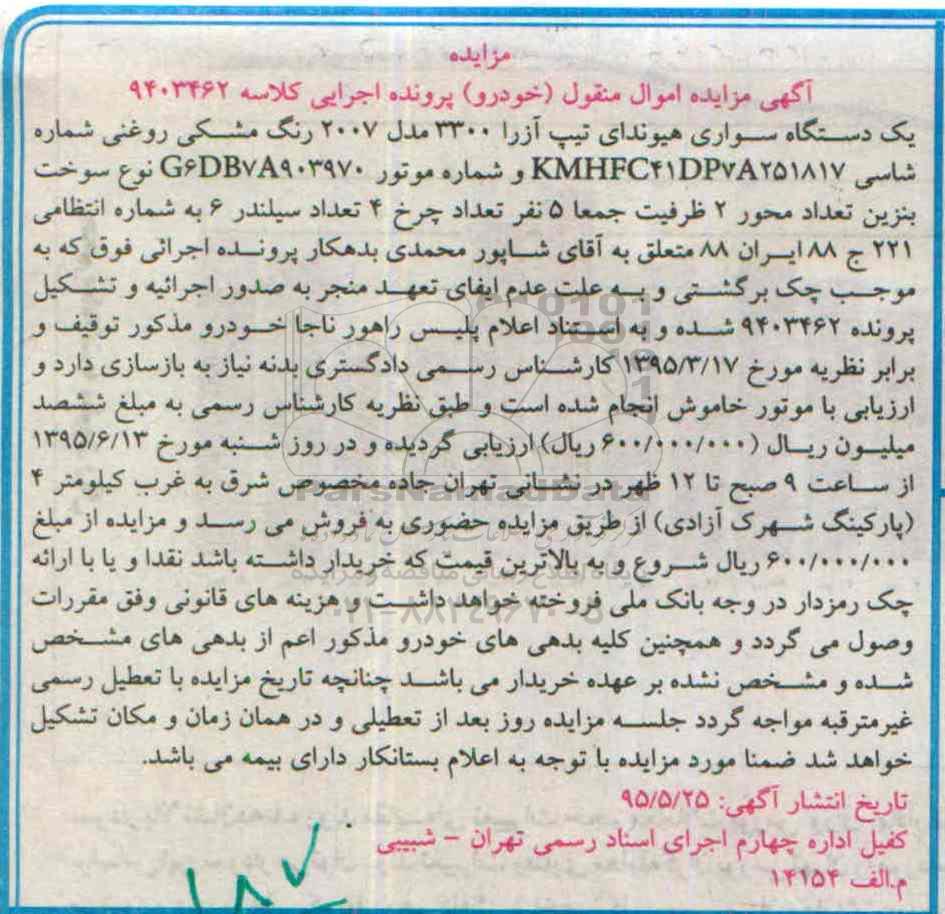 مزایده
آگهی مزایده اموال منقول (خودرو) پرونده اجرایی کلاسه ۹۴۰۳۴۶۲
یک دستگاه سواری هیوندای تیپ آزرا ۳۳۰۰ مدل ۲۰۰۷ رنگ مشکی روغنی شماره
شاسی KMHFC۴۱DP۷A۲۵۱۸۱۷ و شماره موتور G۶DB۷A۹۰۳۹۷۰ نوع سوخت
بنزین تعداد محور ۲ ظرفیت جمعا ۵ نفر تعداد چرخ ۴ تعداد سیلندر ۶ به شماره انتظامی
۲۲۱ ج ۸۸ ایران ۸۸ متعلق به آقای شاپور محمدی بدهکار پرونده اجرائی فوق که به
موجب چک برگشتی و به علت عدم ایفای تعهد منجر به صدور اجرائیه و تشکیل
پرونده ۹۴۰۳۴۶۲ شده و به استناد اعلام پلیس راهور ناجا خودرو مذکور توقیف و
برابر نظریه مورخ ۱۳۹۵/۳/۱۷ کارشناس رسمی دادگستری بدنه نیاز به بازسازی دارد و
ارزیابی با موتور خاموش انجام شده است و طبق نظریه کارشناس رسمی به مبلغ ششصد
میلیون ریال (۶۰۰/۰۰۰/۰۰۰ ریال) ارزیابی گردیده و در روز شنبه مورخ ۱۳۹۵/۶/۱۳
از ساعت ۹ صبح تا ۱۲ ظهر در نشانی تهران جاده مخصوص شرق به غرب کیلومتر ۴
(پارکینگ شهرک آزادی) از طریق مزایده حضوری به فروش می رسد و مزایده از مبلغ
۶۰۰/۰۰۰/۰۰۰ ریال شروع و به بالاترین قیمت که خریدار داشته باشد نقدا و یا با ارائه
چک رمزدار در وجه بانک ملی فروخته خواهد داشت و هزینه های قانونی وفق مقررات
وصول می گردد و همچنین کلیه بدهی های خودرو مذکور اعم از بدهی های مشخص
شده و مشخص نشده بر عهده خریدار می باشد چنانچه تاریخ مزایده با تعطیل رسمی
غیرمترقبه مواجه گردد جلسه مزایده روز بعد از تعطیلی و در همان زمان و مکان تشکیل
خواهد شد ضمنا مورد مزایده با توجه به اعلام بستانکار دارای بیمه می باشد.
تاریخ انتشار آگهی: ۹۵/۵/۲۵
کفیل اداره چهارم اجرای اسناد رسمی تهران - شبیبی
م.الف ۱۴۱۵۴
ParsNamadData